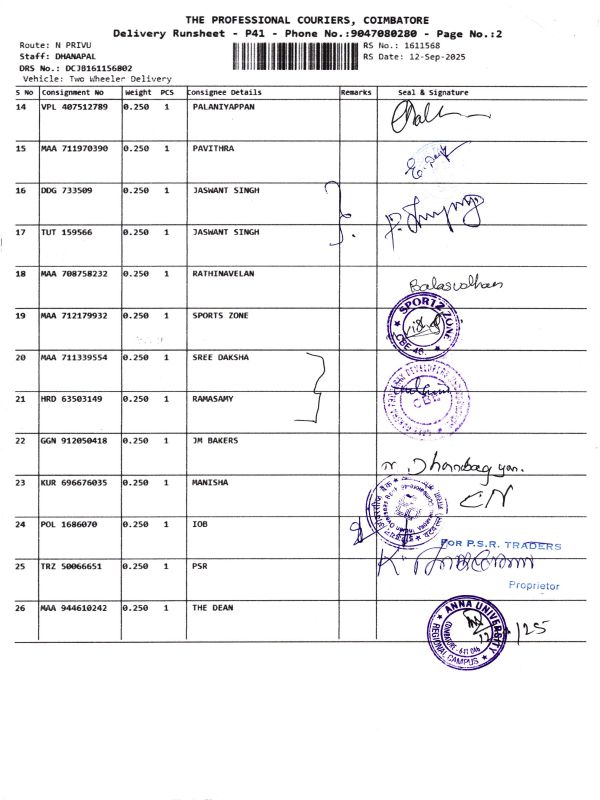 THE PROFESSIONAL COURIERS, COIMBATORE
Delivery Runsheet - P41 - Phone No.:9047080280 - Page No.:2
Route: N PRIVU
RS No.: 1611568
Staff: DHANAPAL
RS Date: 12-Sep-2025
DRS No.: DCJB161156802
Vehicle: Two Wheeler Delivery
S No Consignment No Weight PCS Consignee Details Remarks Seal & Signature
14 VPL 407512789 0.250 1 PALANIYAPPAN
15 MAA 711970390 0.250 1 PAVITHRA
16 DDG 733509 0.250 1 JASWANT SINGH
17 TUT 159566 0.250 1 JASWANT SINGH
18 MAA 708758232 0.250 1 RATHINAVELAN
19 MAA 712179932 0.250 1 SPORTS ZONE
SPORTZ ZONE
CBE-46.
20 MAA 711339554 0.250 1 SREE DAKSHA
21 HRD 63503149 0.250 1 RAMASAMY
CBE
22 GGN 912050418 0.250 1 JM BAKERS
23 KUR 696676035 0.250 1 MANISHA
24 POL 1686070 0.250 1 IOB
FOR P.S.R. TRADERS
25 TRZ 50066651 0.250 1 PSR
Proprietor
26 MAA 944610242 0.250 1 THE DEAN
ANNA UNIVERSITY
REGIONAL CAMPUS
COIMBATORE - 641 046